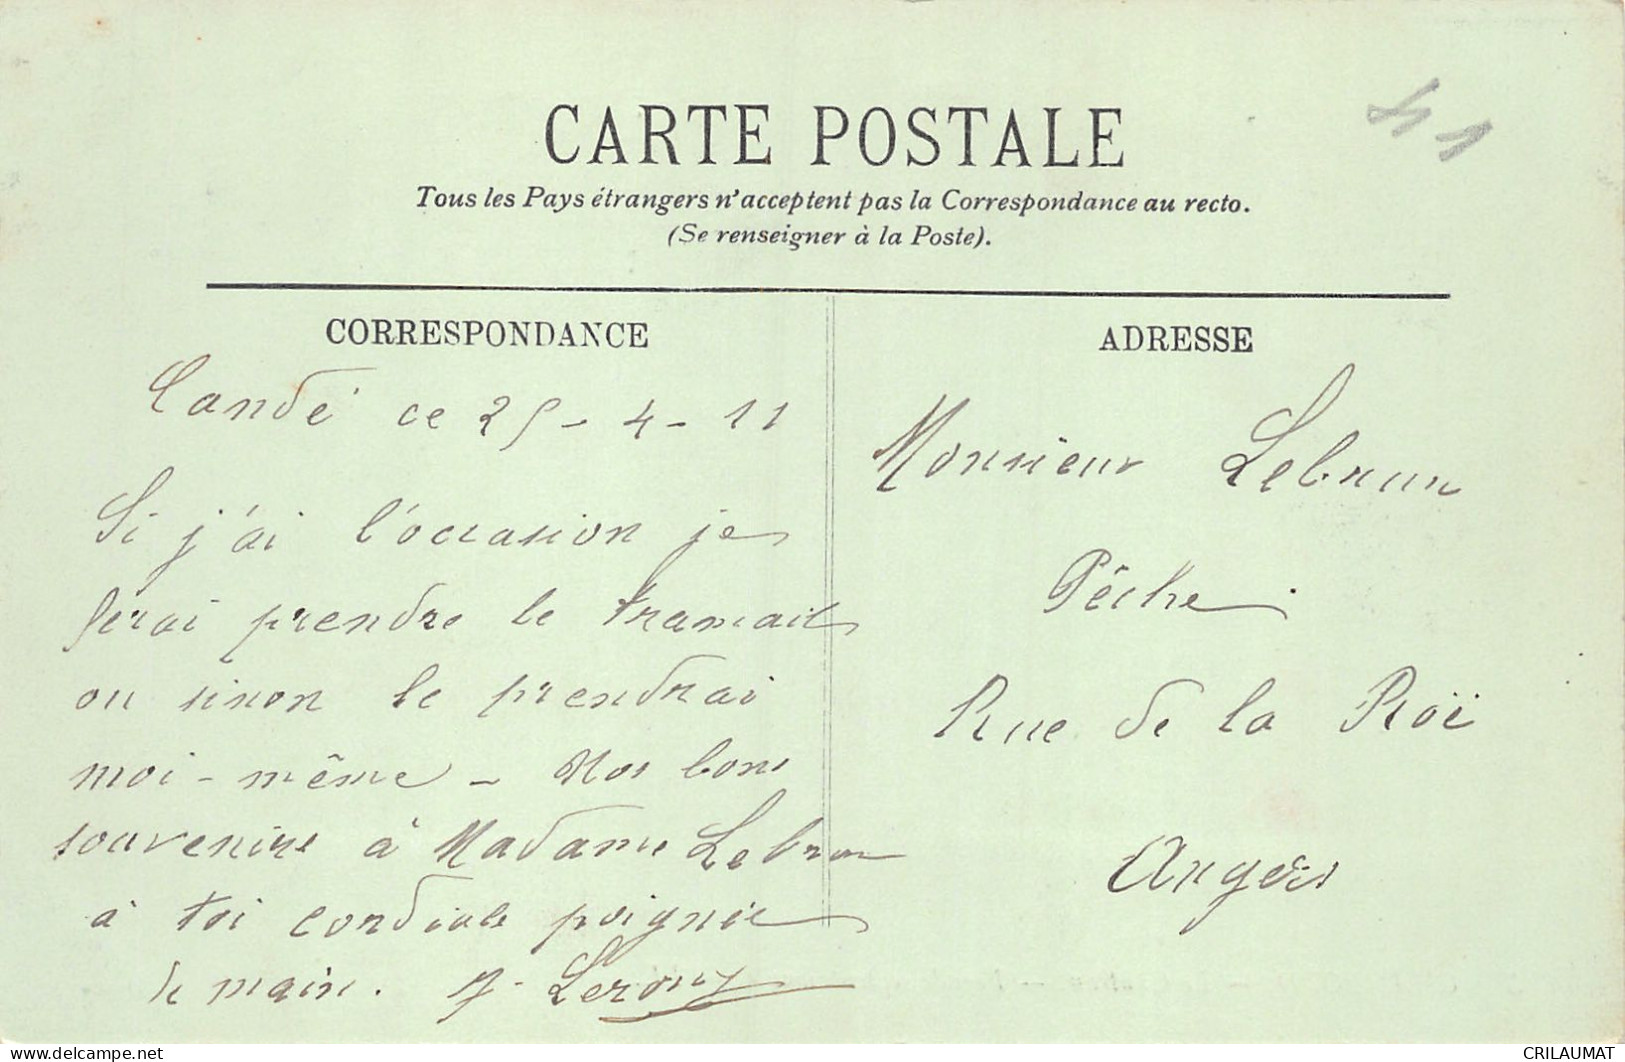 41
CARTE POSTALE
Tous les Pays étrangers n'acceptent pas la Correspondance au recto.
(Se renseigner à la Poste).
CORRESPONDANCE
Candé ce 25-4-11
Si j'ai l'occasion je
ferai prendre le tramail
ou sinon le prendrai
moi-même - Nos bons
souvenirs à Madame Lebrun
à toi cordiale poignée
de main.
ADRESSE
Monsieur Lebrun
Pêche.
Rue de la Roë
Angers
delcampe.net
CRILAUMAT